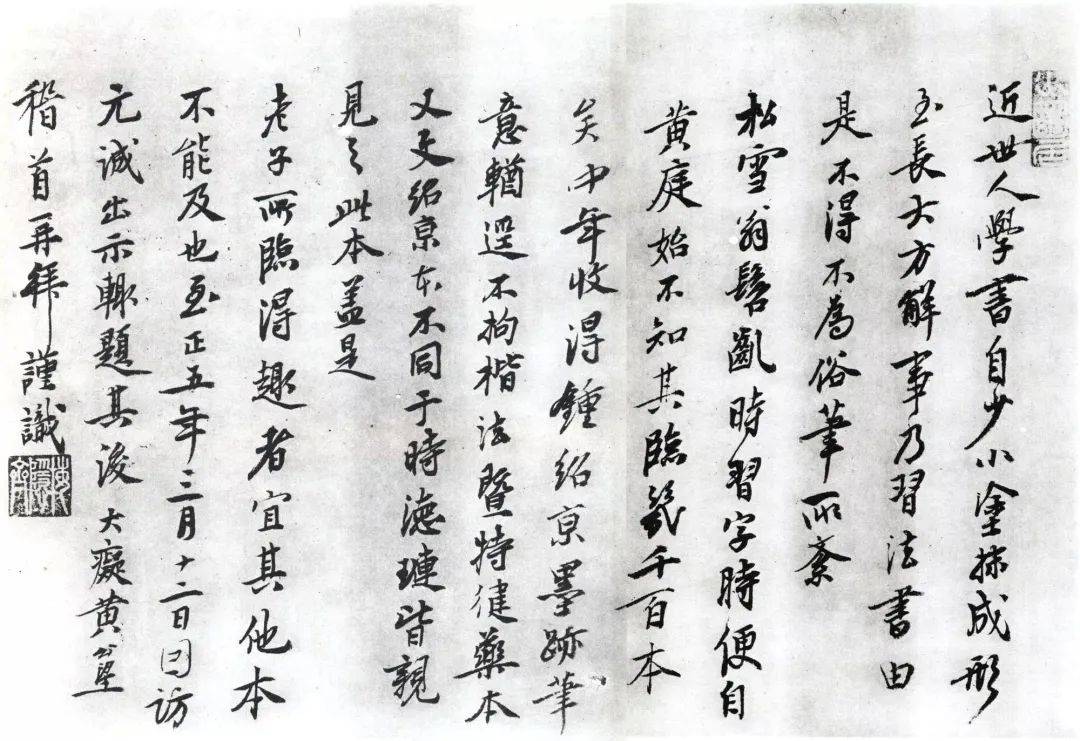 近世人學書自少小塗抹成形
至長大方解事乃習法書由
是不得不為俗筆所紊
松雪翁髫齓時習字時便自
黃庭始不知其臨幾千百本
矣中年收得鍾紹京墨跡筆
意輶逕不拘楷法暨特健藥本
又是紹京本不同于時德璉皆親
見之此本蓋是
老子所臨得趣者宜其他本
不能及也至正五年三月十二日因訪
元誠出示輙題其後 大癡黃公望
稽首再拜謹識